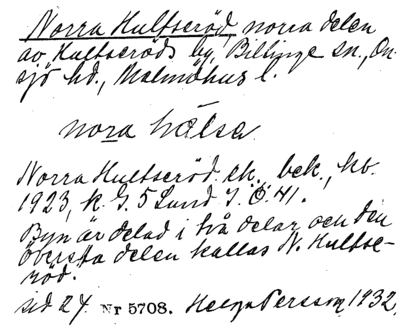 Norra Hultseröd norra delen
av Hultseröds by, Billinge sn., On-
sjö hd., Malmöhus l.
nora hälsa
Norra Hultseröd. ek., bek., kb.
1923, k. G. 5 Lund J. Ö 41.
Byn är delad i två delar och den
översta delen kallas N. Hultse-
röd.
sid 24. Nr 5708. Helga Persson 1932,